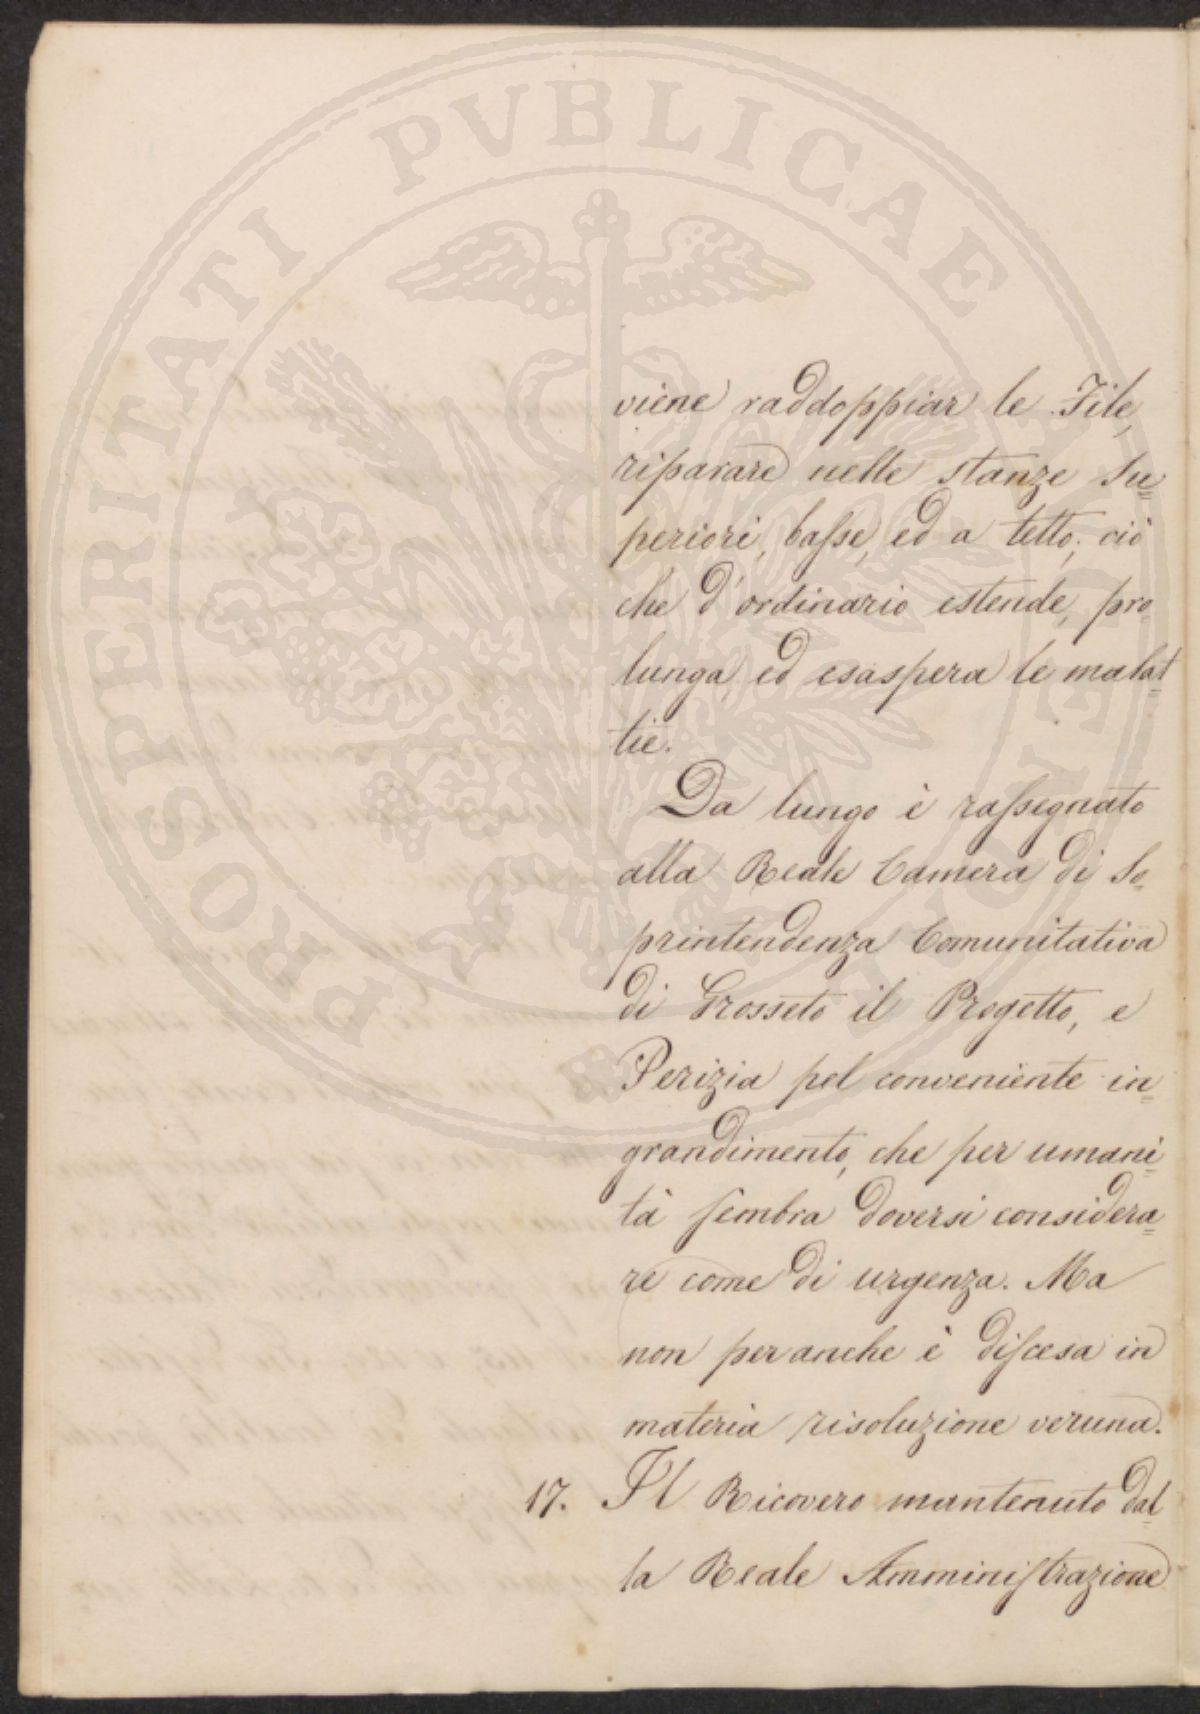 PROSPERITATI PVBLICAE
viene raddoppiar le File,
riparare nelle stanze su=
periori, basse, ed a tetto; ciò
che d'ordinario estende, pro
lunga, ed esaspera le malat=
tie.
Da lungo è rassegnato
alla Reale Camera di So=
printendenza Comunitativa
di Grosseto il Progetto, e
Perizia pel conveniente in=
grandimento, che per umani=
tà sembra doversi considera=
re come di urgenza. Ma
non per anche è discesa in
materia risoluzione veruna.
17. Il Ricovero mantenuto dal=
la Reale Amministrazione